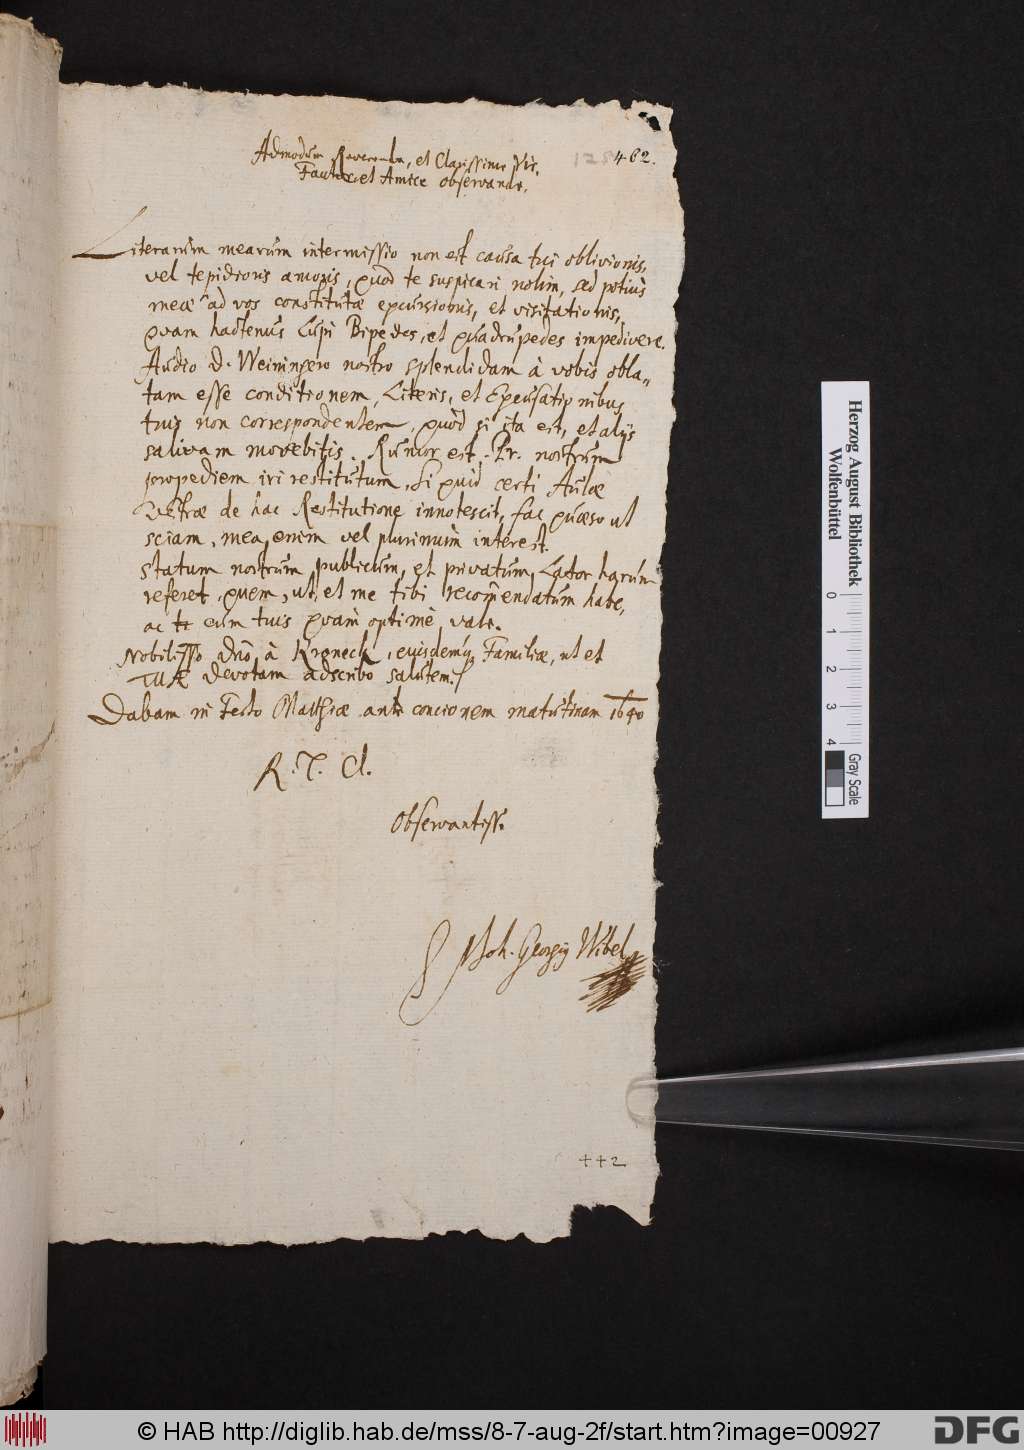 Admodum Reverende, et Clarissime Vir,
462.
Fautor et Amice observande,
Literarum mearum intermissio non est causa tui oblivionis,
vel tepidioris amoris, quod te suspicari nolim, sed potius
meæ ad vos constitutæ excursionis, et visitationis,
quam hactenus Lupi Bipedes, et quadrupedes impedivere.
Audio D. Weiningero nostro splendidam à vobis obla„
tam esse conditionem, Literis, et Excusationibus
tuis non correspondentem, quòd si ita est, et alijs
salivam movebitis. Rumor est. Pr. nostrum
propediem iri restitutum. Si quid certi Aulæ
Vestræ de hac Restitutione innotescit, fac quæso ut
sciam, mea enim vel plurimùm interest.
Statum nostrum publicum, et privatum, Lator harum
referet, quem, ut et me tibi recom̄endatum habe,
ac te cum tuis quàm optimè vale.
Nobilisso Dn̄o à Kroneck, eiusdemq; Familiæ, ut et
TUÆ devotam adscribo salutem.
Dabam in Festo Matthiæ ante concionem matutinam 1640
R. T. Cl.
Observantiss.
Joh. Georg Wibel
442
Herzog August Bibliothek
Wolfenbüttel
0 1 2 3 4
Gray Scale
© HAB http://diglib.hab.de/mss/8-7-aug-2f/start.htm?image=00927
DFG